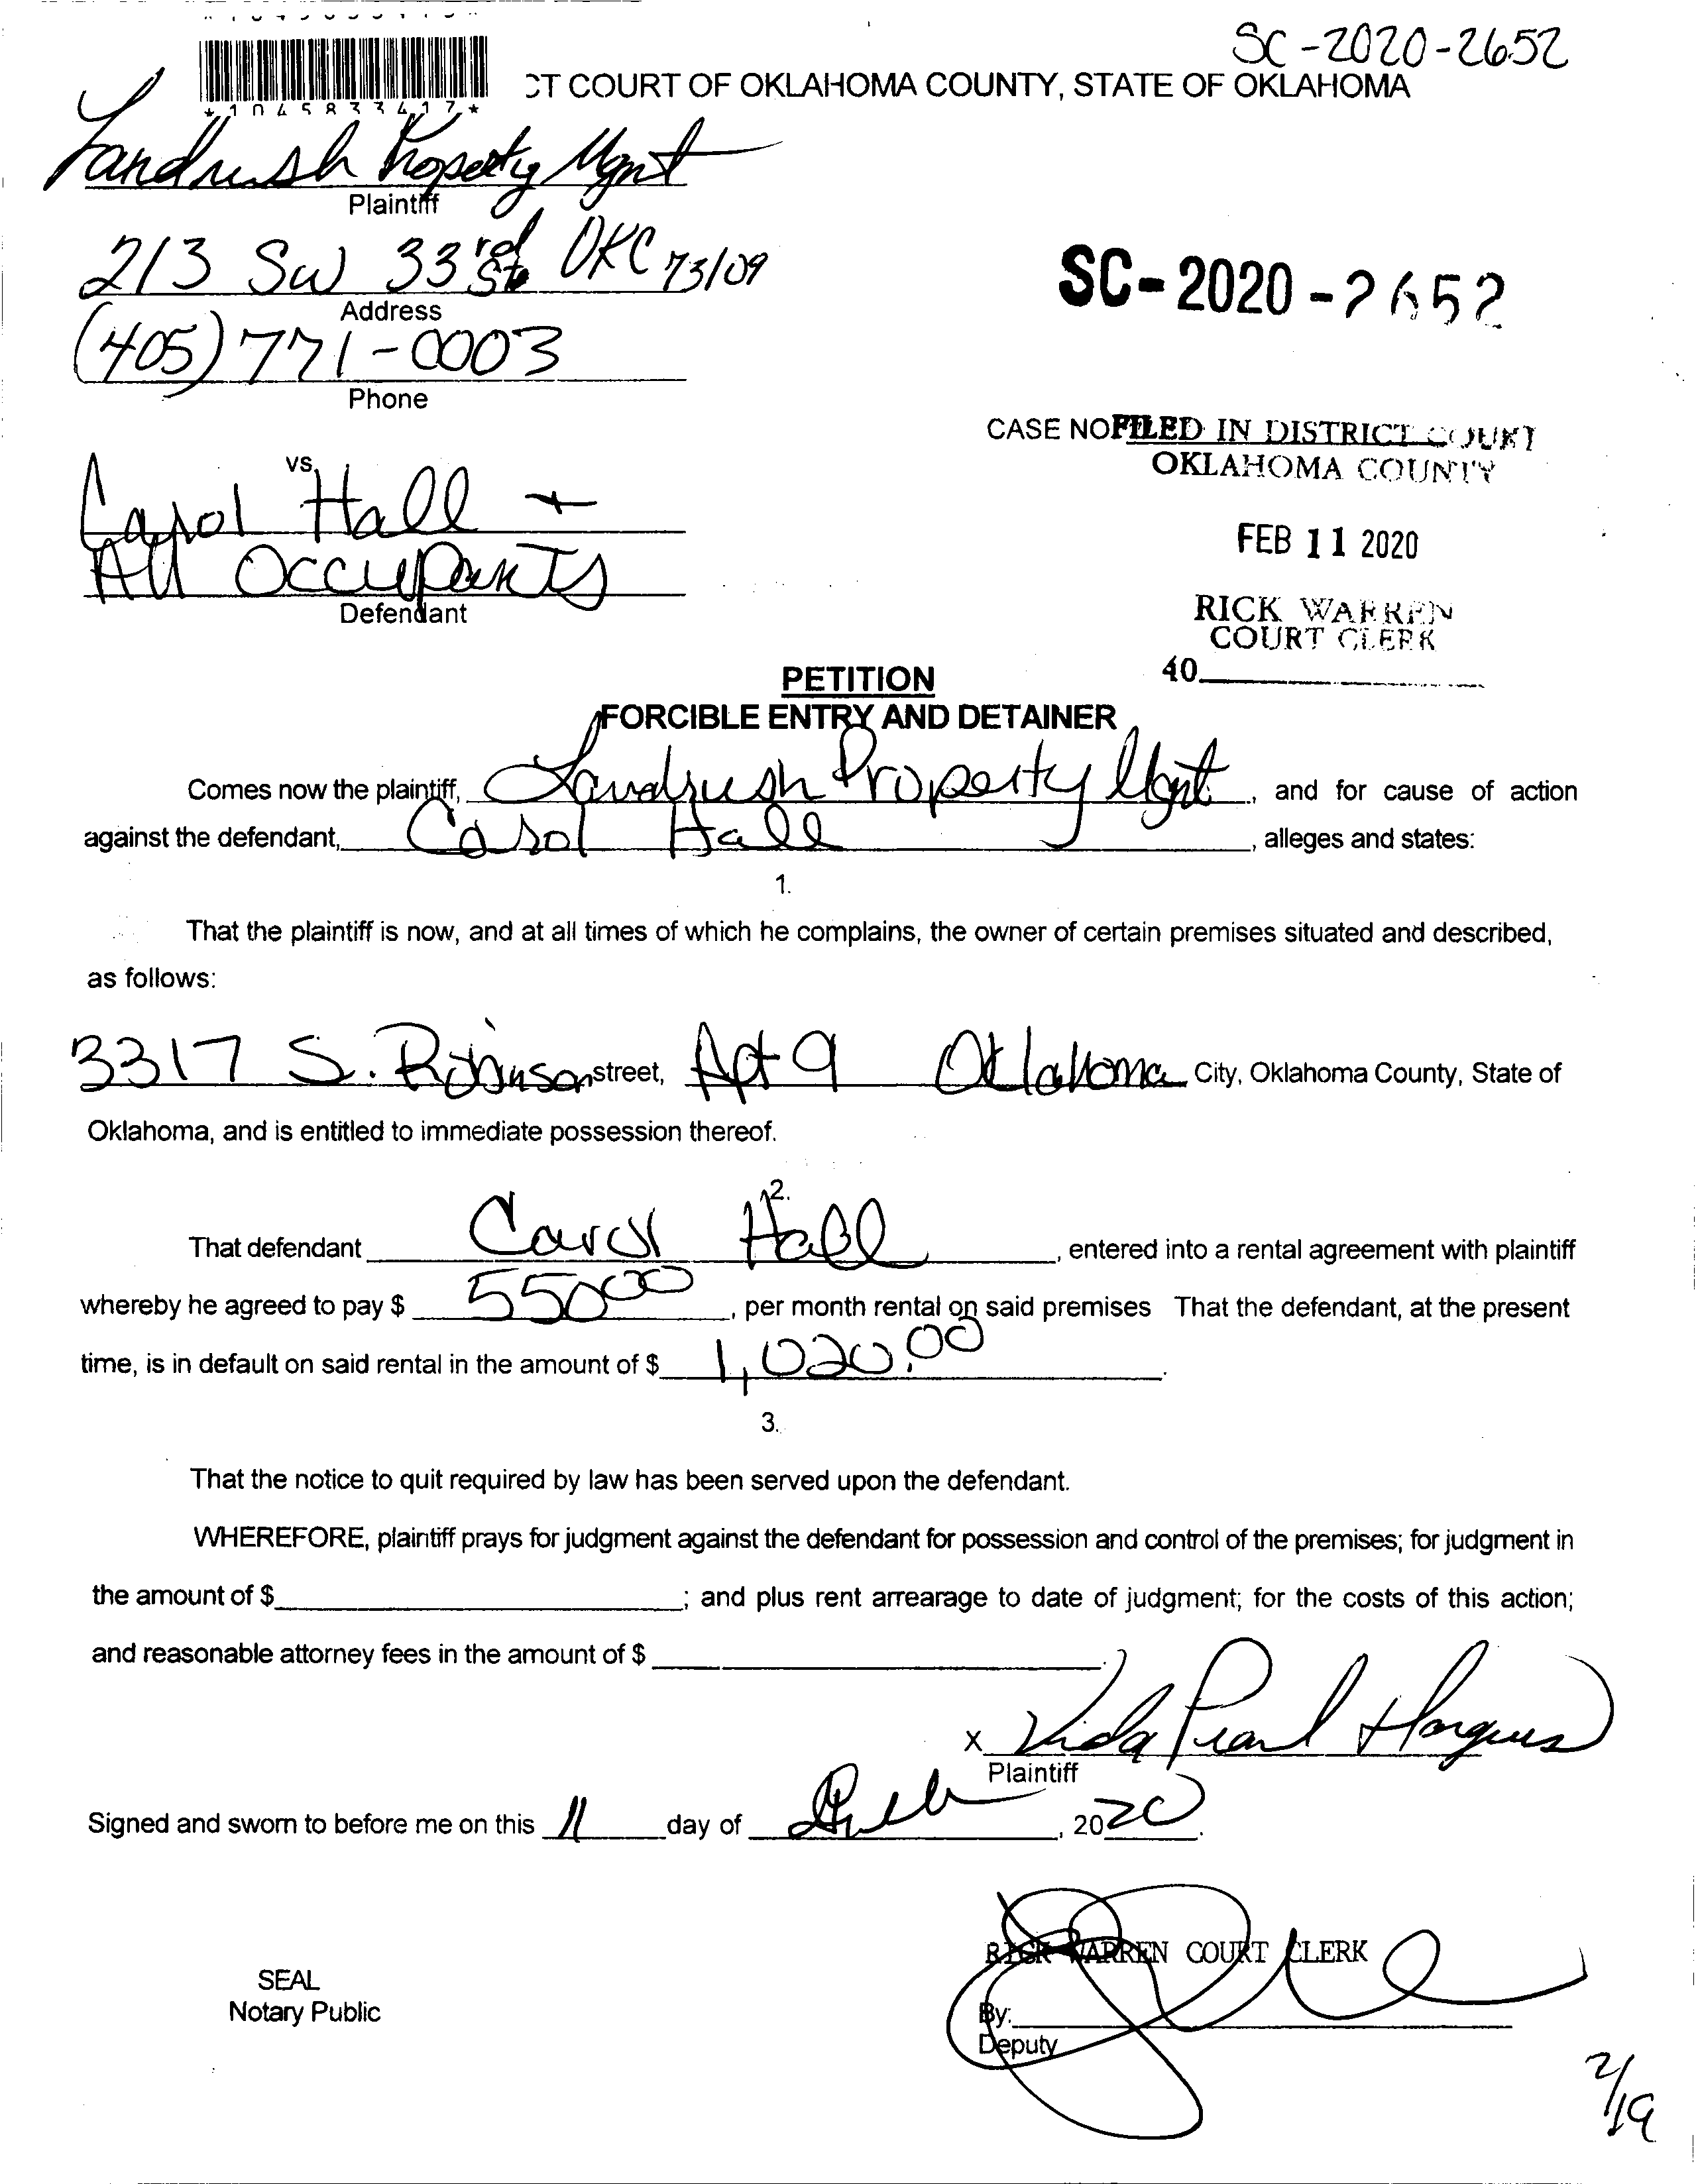 SC-2020-2652
*1045833417*
CT COURT OF OKLAHOMA COUNTY, STATE OF OKLAHOMA
Landrush Property Mgmt
Plaintiff
213 SW 33rd St. OKC 73109
Address
SC-2020-2652
(405) 771-0003
Phone
CASE NO FILED IN DISTRICT COURT
OKLAHOMA COUNTY
vs.
Carol Hall +
All Occupants
Defendant
FEB 11 2020
RICK WARREN
COURT CLERK
40
PETITION
FORCIBLE ENTRY AND DETAINER
Comes now the plaintiff, Landrush Property Mgmt, and for cause of action
against the defendant, Carol Hall, alleges and states:
1.
That the plaintiff is now, and at all times of which he complains, the owner of certain premises situated and described,
as follows:
3317 S. Robinson street, Apt 9 Oklahoma City, Oklahoma County, State of
Oklahoma, and is entitled to immediate possession thereof.
2.
That defendant Carol Hall, entered into a rental agreement with plaintiff
whereby he agreed to pay $ 550 00, per month rental on said premises That the defendant, at the present
time, is in default on said rental in the amount of $ 1,020.00.
3.
That the notice to quit required by law has been served upon the defendant.
WHEREFORE, plaintiff prays for judgment against the defendant for possession and control of the premises; for judgment in
the amount of $ ; and plus rent arrearage to date of judgment; for the costs of this action;
and reasonable attorney fees in the amount of $ .
x Vida Pearl
Plaintiff
Signed and sworn to before me on this 11 day of , 2020.
RICK WARREN COURT CLERK
SEAL
Notary Public
By:
Deputy
2/19